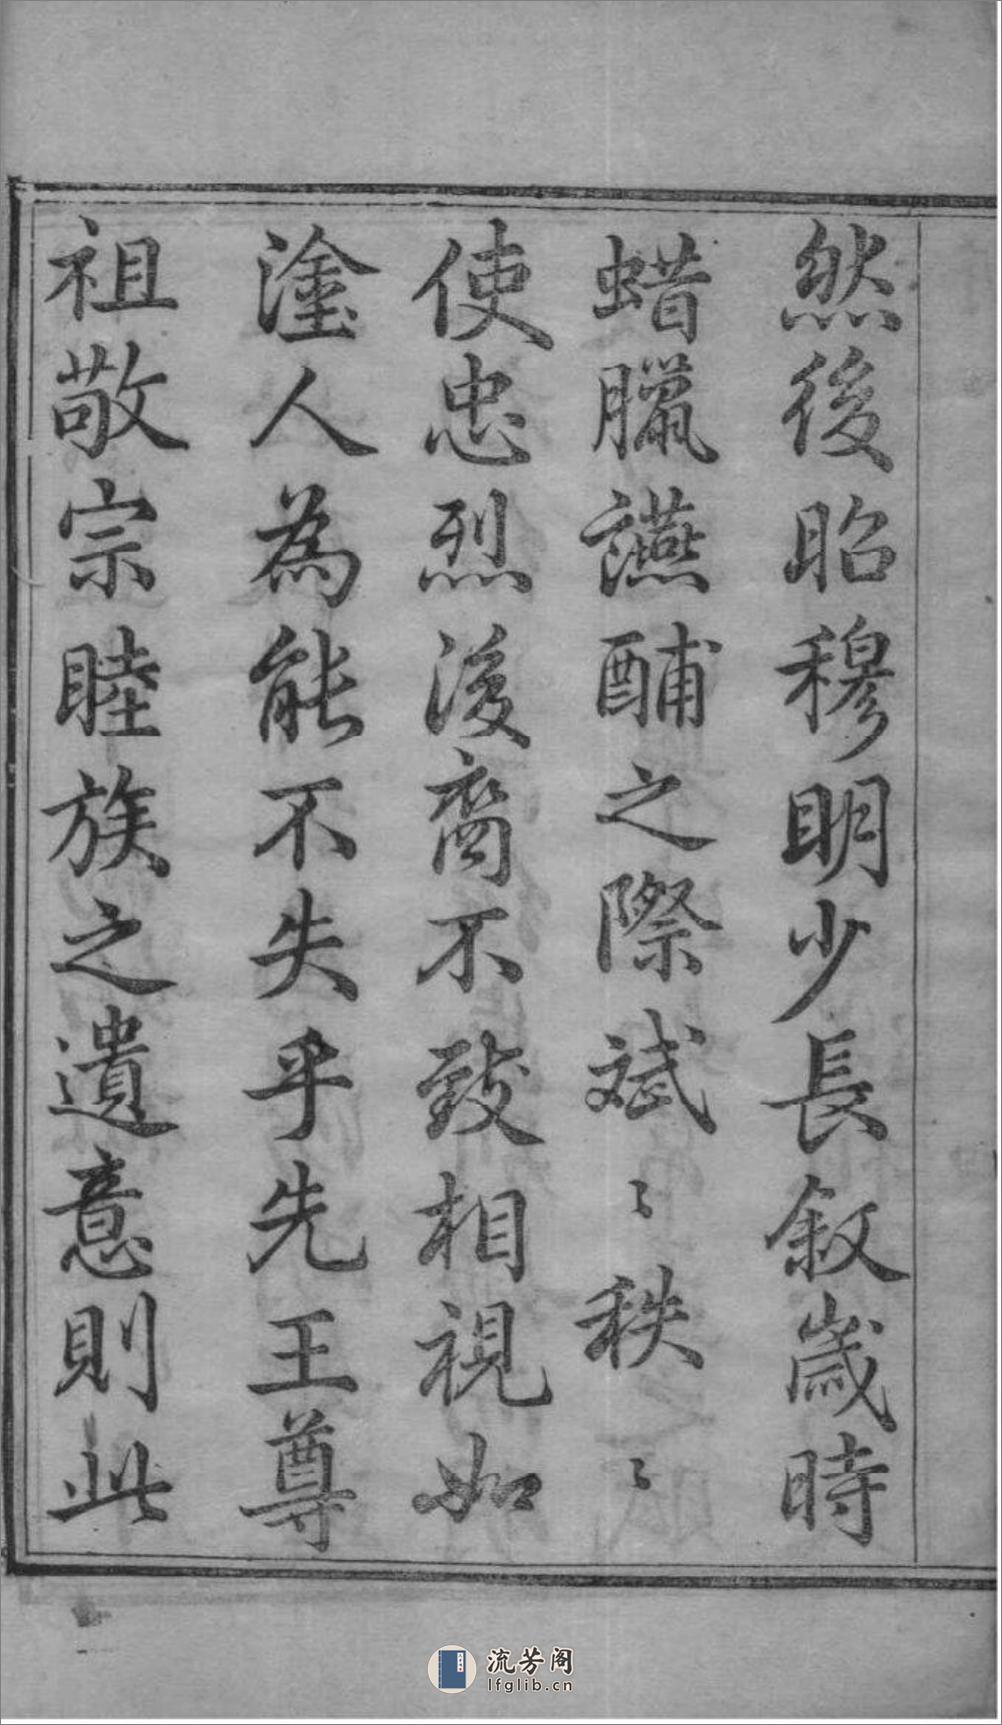 然後昭穆明少長敘歲時
蜡臘讌酺之際斌〻秩〻
使忠烈後裔不致相視如
塗人為能不失乎先王尊
祖敬宗睦族之遺意則此
流芳阁
lfglib.cn